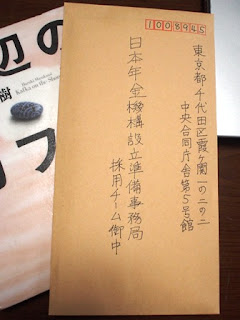 1008945
東京都千代田区霞ヶ関一の二の二
中央合同庁舎第5号館
日本年金機構設立準備事務局
採用チーム御中
辺の
樹
Haruki Murakami
Kafka on the Shore
フ